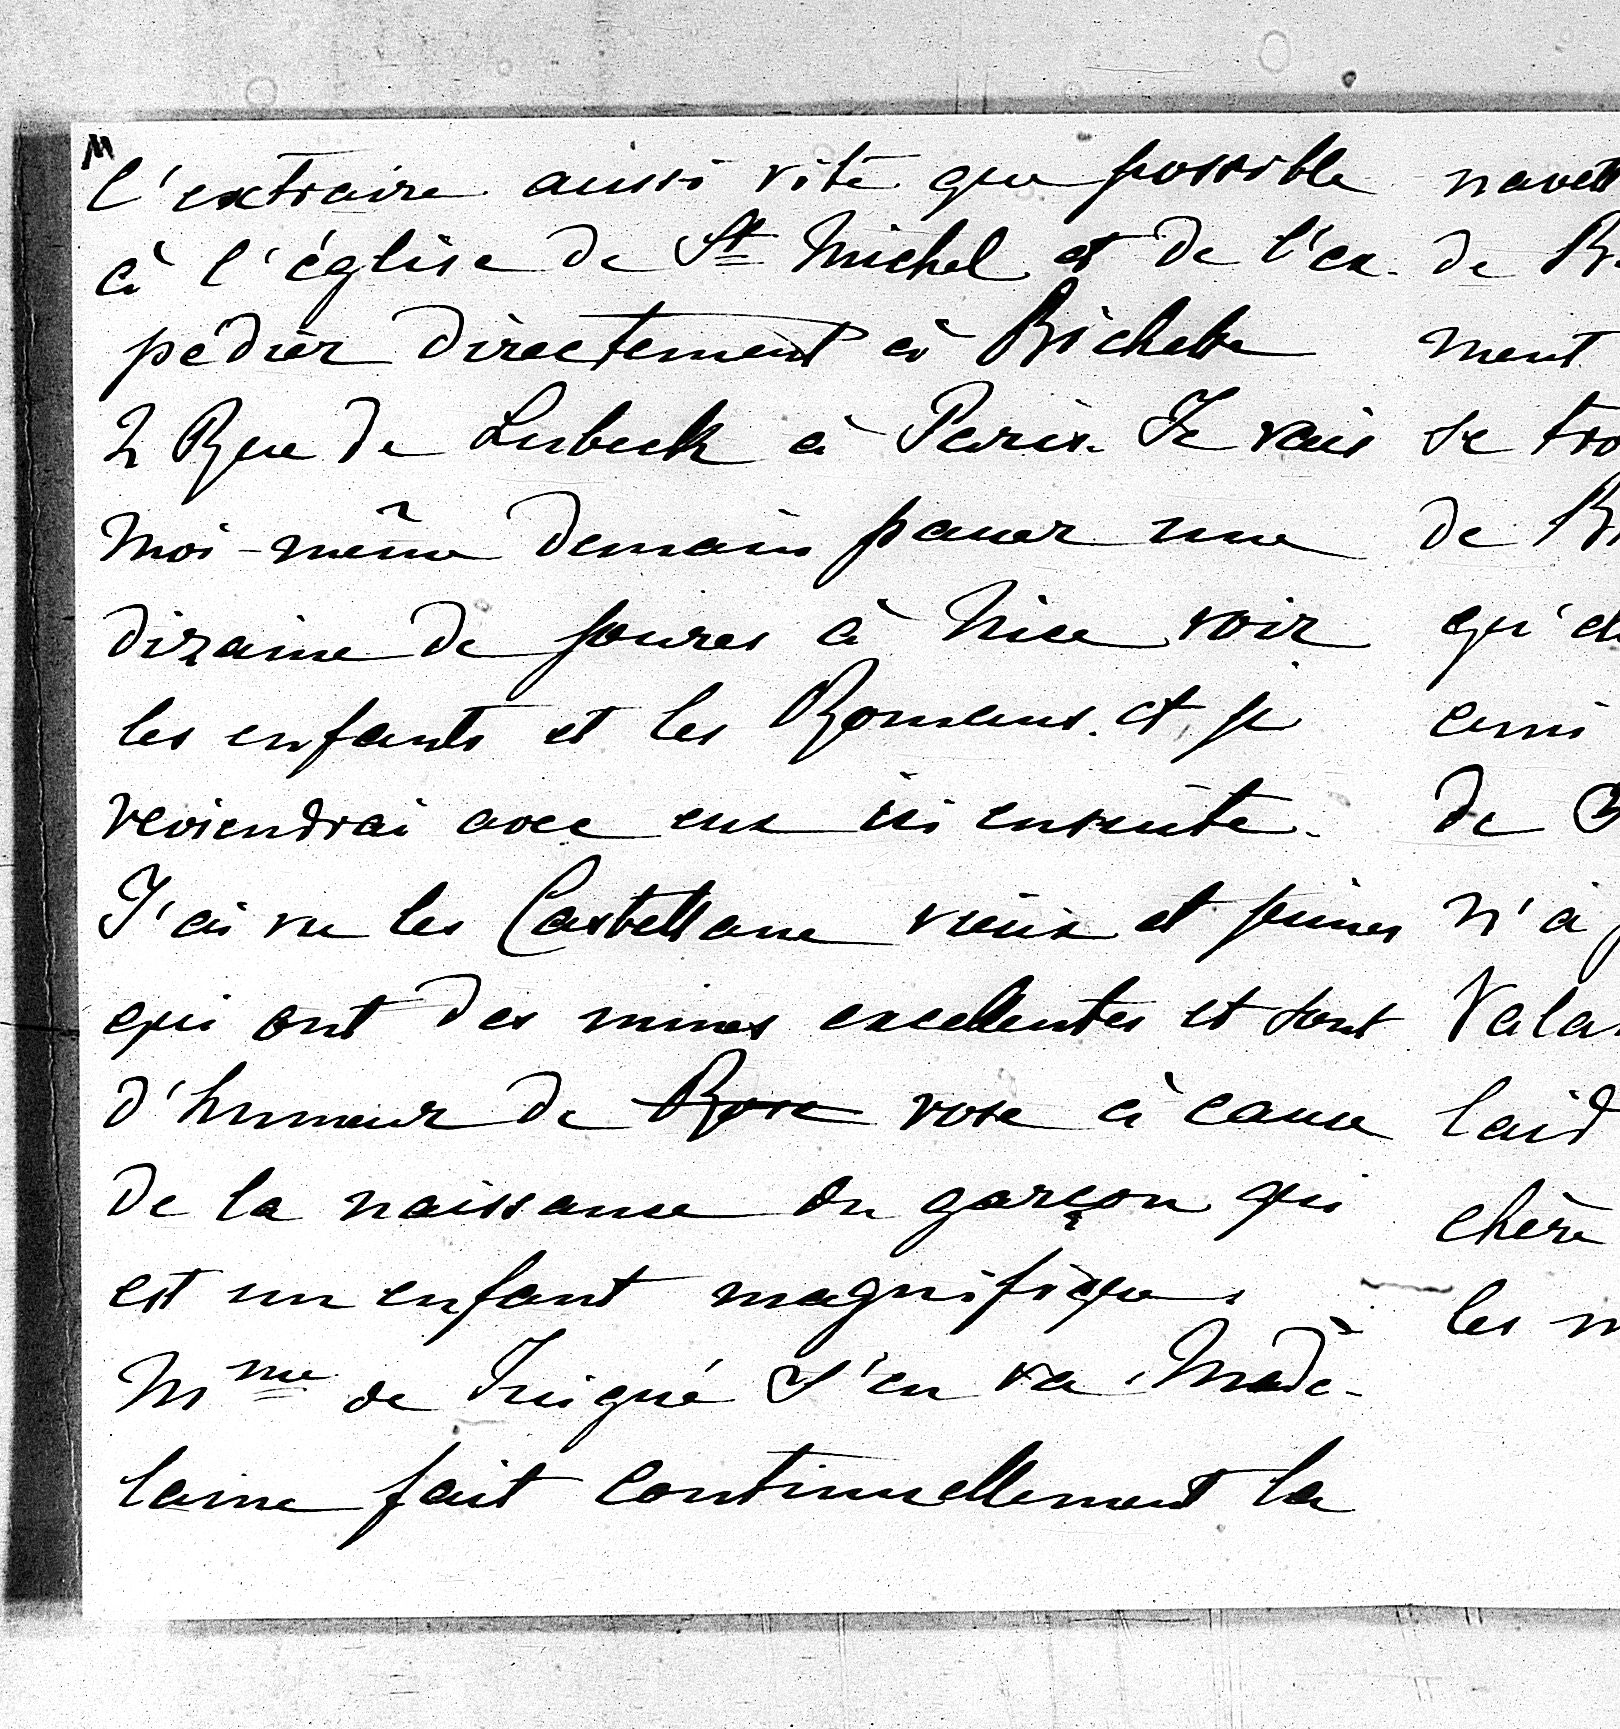 l'extraire aussi vite que possible
à l'église de St Michel et de l'ex-
pédier directement à Bichette
2 Rue de Lubeck à Paris. Je vais
moi-même demain passer une
dizaine de jours à Nice voir
les enfants et les Romans. et je
reviendrai avec eux ici ensuite.
J'ai vu les Castellane vieux et jeunes
qui ont des mines excellentes et sont
d'humeur de Rose rose à cause
de la naissance du garçon qui
est un enfant magnifique.
Mme de s'en va. Made-
laine fait continuellement la
de
ment
se
de
qu'
de
n'a
laid
chère
les